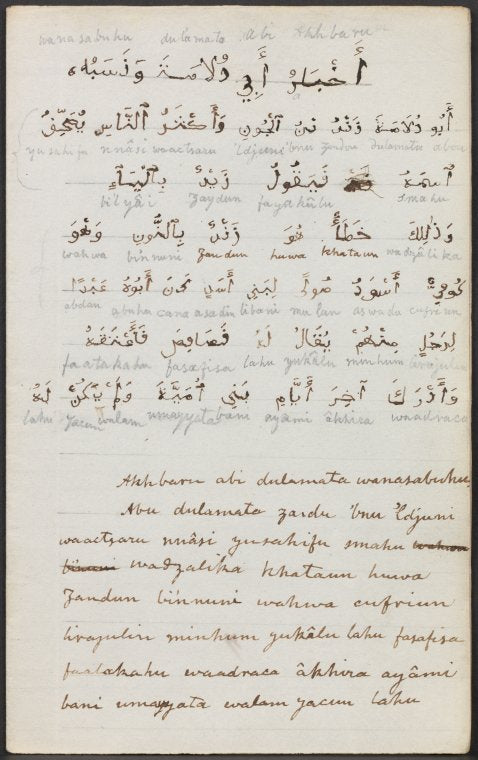 wanasabuhu dulamata Abi Akhbaru
أَخْبَارُ أَبِي دُلَامَةَ وَنَسَبُهُ
أَبُو دُلَامَةَ زَنْدُ بْنُ ٱلْجُونِ وَأَكْثَرُ ٱلنَّاسِ يُصَحِّفُ
yusahifu nnâsi waactsaru 'ldjuni 'bnu zandu dulamatu abou
ٱسْمَهُ فَيَقُولُ زَيْدٌ بِٱلْيَاءِ
bi'l yâi Zaydun fayakûlu smahu
وَذَٰلِكَ خَطَأٌ هُوَ زَنْدٌ بِٱلنُّونِ وَهُوَ
wahwa binnuni Zandun huwa khataun wadzâlika
كُوفِيٌّ أَسْوَدُ مَوْلًى لِبَنِي أَسَدٍ كَانَ أَبُوهُ عَبْدًا
abdan abuhu cana asadin libani mulan aswadu cufriun
لِرَجُلٍ مِنْهُمْ يُقَالُ لَهُ فَصَافِصَ فَأَعْتَقَهُ
faatakahu fasafisa lahu yukâlu minhum lirajulin
وَأَدْرَكَ آخِرَ أَيَّامِ بَنِي أُمَيَّةَ وَلَمْ يَكُنْ لَهُ
lahu yacun walam umayyata bani ayâmi âkhira waadraca
Akhbaru abi dulamata wanasabuhu
Abu dulamata zaidu 'bnu 'ldjuni
waactsaru nnâsi yusahifu smahu
wadzalika khataun huwa
Zandun bi'nnuni wahwa cufriun
lirajulin minhum yukâlu lahu fasafisa
faatakahu waadraca âkhira ayâmi
bani umayyata walam yacun lahu